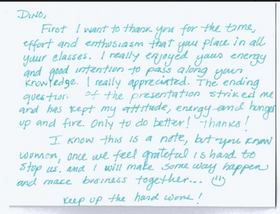 DINO,
First I want to thank you for the time,
effort and enthusiasm that you place in all
your classes. I really enjoyed your energy
and good intention to pass along your
knowledge. I really appreciated. The ending
question of the presentation striked me
and has kept my attitude, energy and
up and fire only to do better! Thanks!
I know this is a note, but you know
woman, one we feel grateful is hard to
stop us, and I will make some way happen
and make business together... ☺
Keep up the hard work!